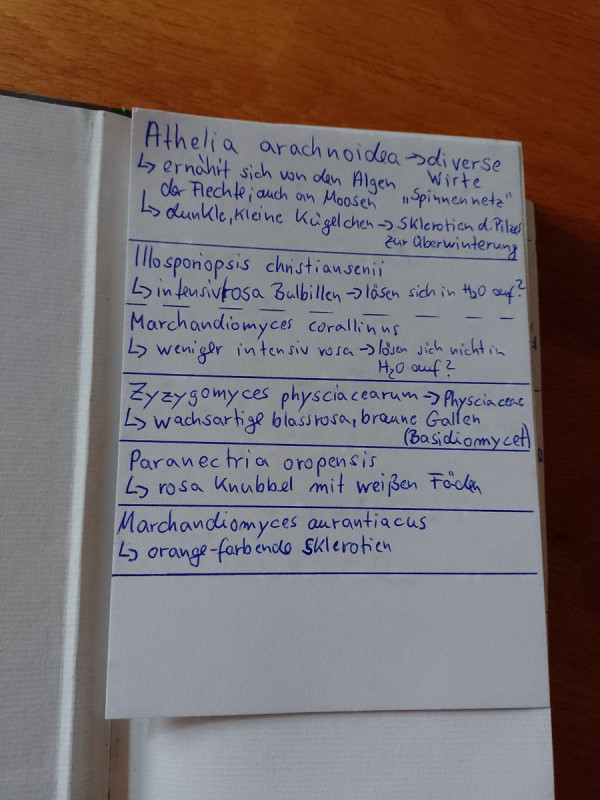 Athelia arachnoidea → diverse
↳ ernährt sich von den Algen Wirte
der Flechte; auch an Moosen „Spinnennetz"
↳ dunkle, kleine Kügelchen → Sklerotien d. Pilzes
zur Überwinterung
Illosporiopsis christiansenii
↳ intensivrosa Bulbillen → lösen sich in H₂O auf?
Marchandiomyces corallinus
↳ weniger intensiv rosa → lösen sich nicht in
H₂O auf?
Zyzygomyces physciacearum → Physciaceae
↳ wachsartige blassrosa, braune Gallen
(Basidiomycet)
Paranectria oropensis
↳ rosa Knubbel mit weißen Fäden
Marchandiomyces aurantiacus
↳ orange-farbende Sklerotien